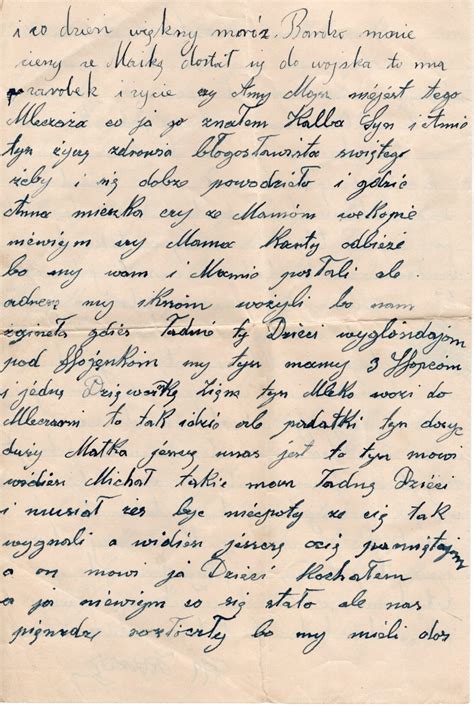 i co dzień więkny moróz. Bardzo mnie
cieszy że Maiką dostał się do wojska to ma
zarobek i życie czy Amy Monz niejest tego
Mleczoża co ja go znałem Kalba Syn i Amie
tyn życzę zdrowia błogosławista swiętego
żeby i się dobze powodziało i gdzie
Anna mieszka czy ze Mamóm wekopnie
niewiym czy Mama Kanty odbieże
bo my wam i Mamie posłali ale
adnez my iknóm wożyli bo nam
zagineła gdzieś Ładnie ty Dzieci wyglóndajom
pod my tyn mamy 3 Hopców
i jedną Dziywuszkę tyn Mleko wozi do
Mleczarni to tak idzie ale padatki tyn dosyć
duży Matka jesucy unas jest to tyn mowi
widzisz Michoł takie mosz Ładną Dzieci
i musioł żeś być niecpoty ze cię tak
wygnali a widzisz jeszczę cię pamiętajom
a on mowi ja Dzieci Kochałem
a ja niewiym co się stało ale nas
pięniądze rozłoczły bo my mieli doś